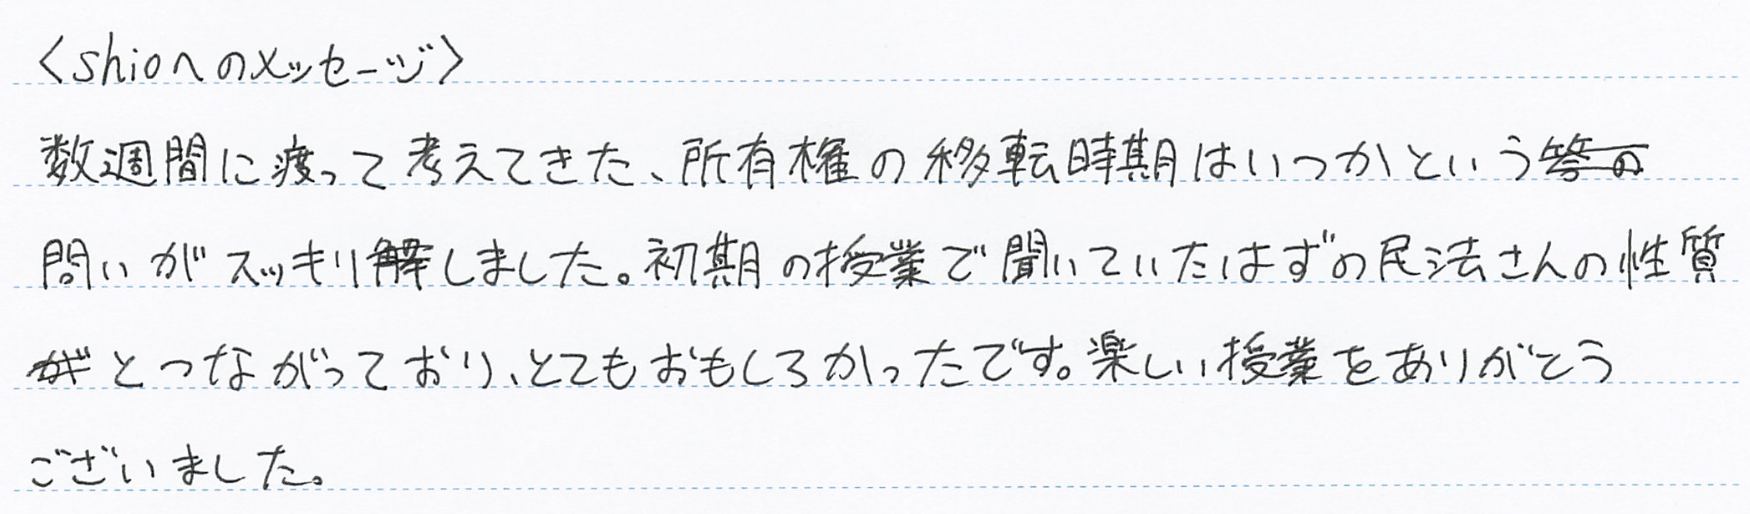 <shioへのメッセージ>
数週間に渡って考えてきた、所有権の移転時期はいつかという
問いがスッキリ解しました。初期の授業で聞いていたはずの民法さんの性質
とつながっており、とてもおもしろかったです。楽しい授業をありがとう
ございました。